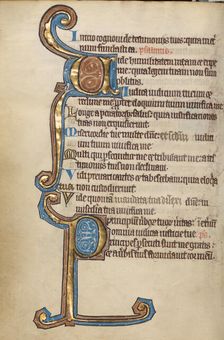 Inicio cognoui de testimoniis tuis: quia in et
num fundasti ea.
Vide humilitatem meam et eripe
me: quia legem tuam non sum
oblitus.
Iudica iudicium meum et
redime me: propter eloquium tuum uiuifica me.
Longe a peccatoribus salus: quia iustificationes
tuas non exquisierunt.
Misericordie tue multe domine: secundum iudi
cium tuum uiuifica me.
Multi qui persecuntur me et tribulant me: a testi
moniis tuis non declinaui.
Vidi preuaricantes et tabescebam: quia eloquia
tua non custodierunt.
Vide quoniam mandata tua dilexi domine: in
misericordia tua uiuifica me.
Principium uerborum tuorum ueritas: in eternum
omnia iudicia iusticie tue.
Principes persecuti sunt me gratis:
et a uerbis tuis formidauit cor meum.